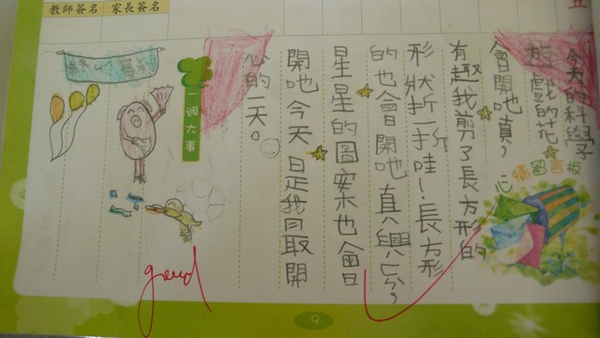 教師簽名
家長簽名
五
今天的科學
戲的花
會開吔真
有趣我剪了長方形的
形狀折一折哇!長方形
的也會開吔真興
星星的圖案也會
開吔今天是我最開
心的一天。
心情留言板
一週大事
good
9